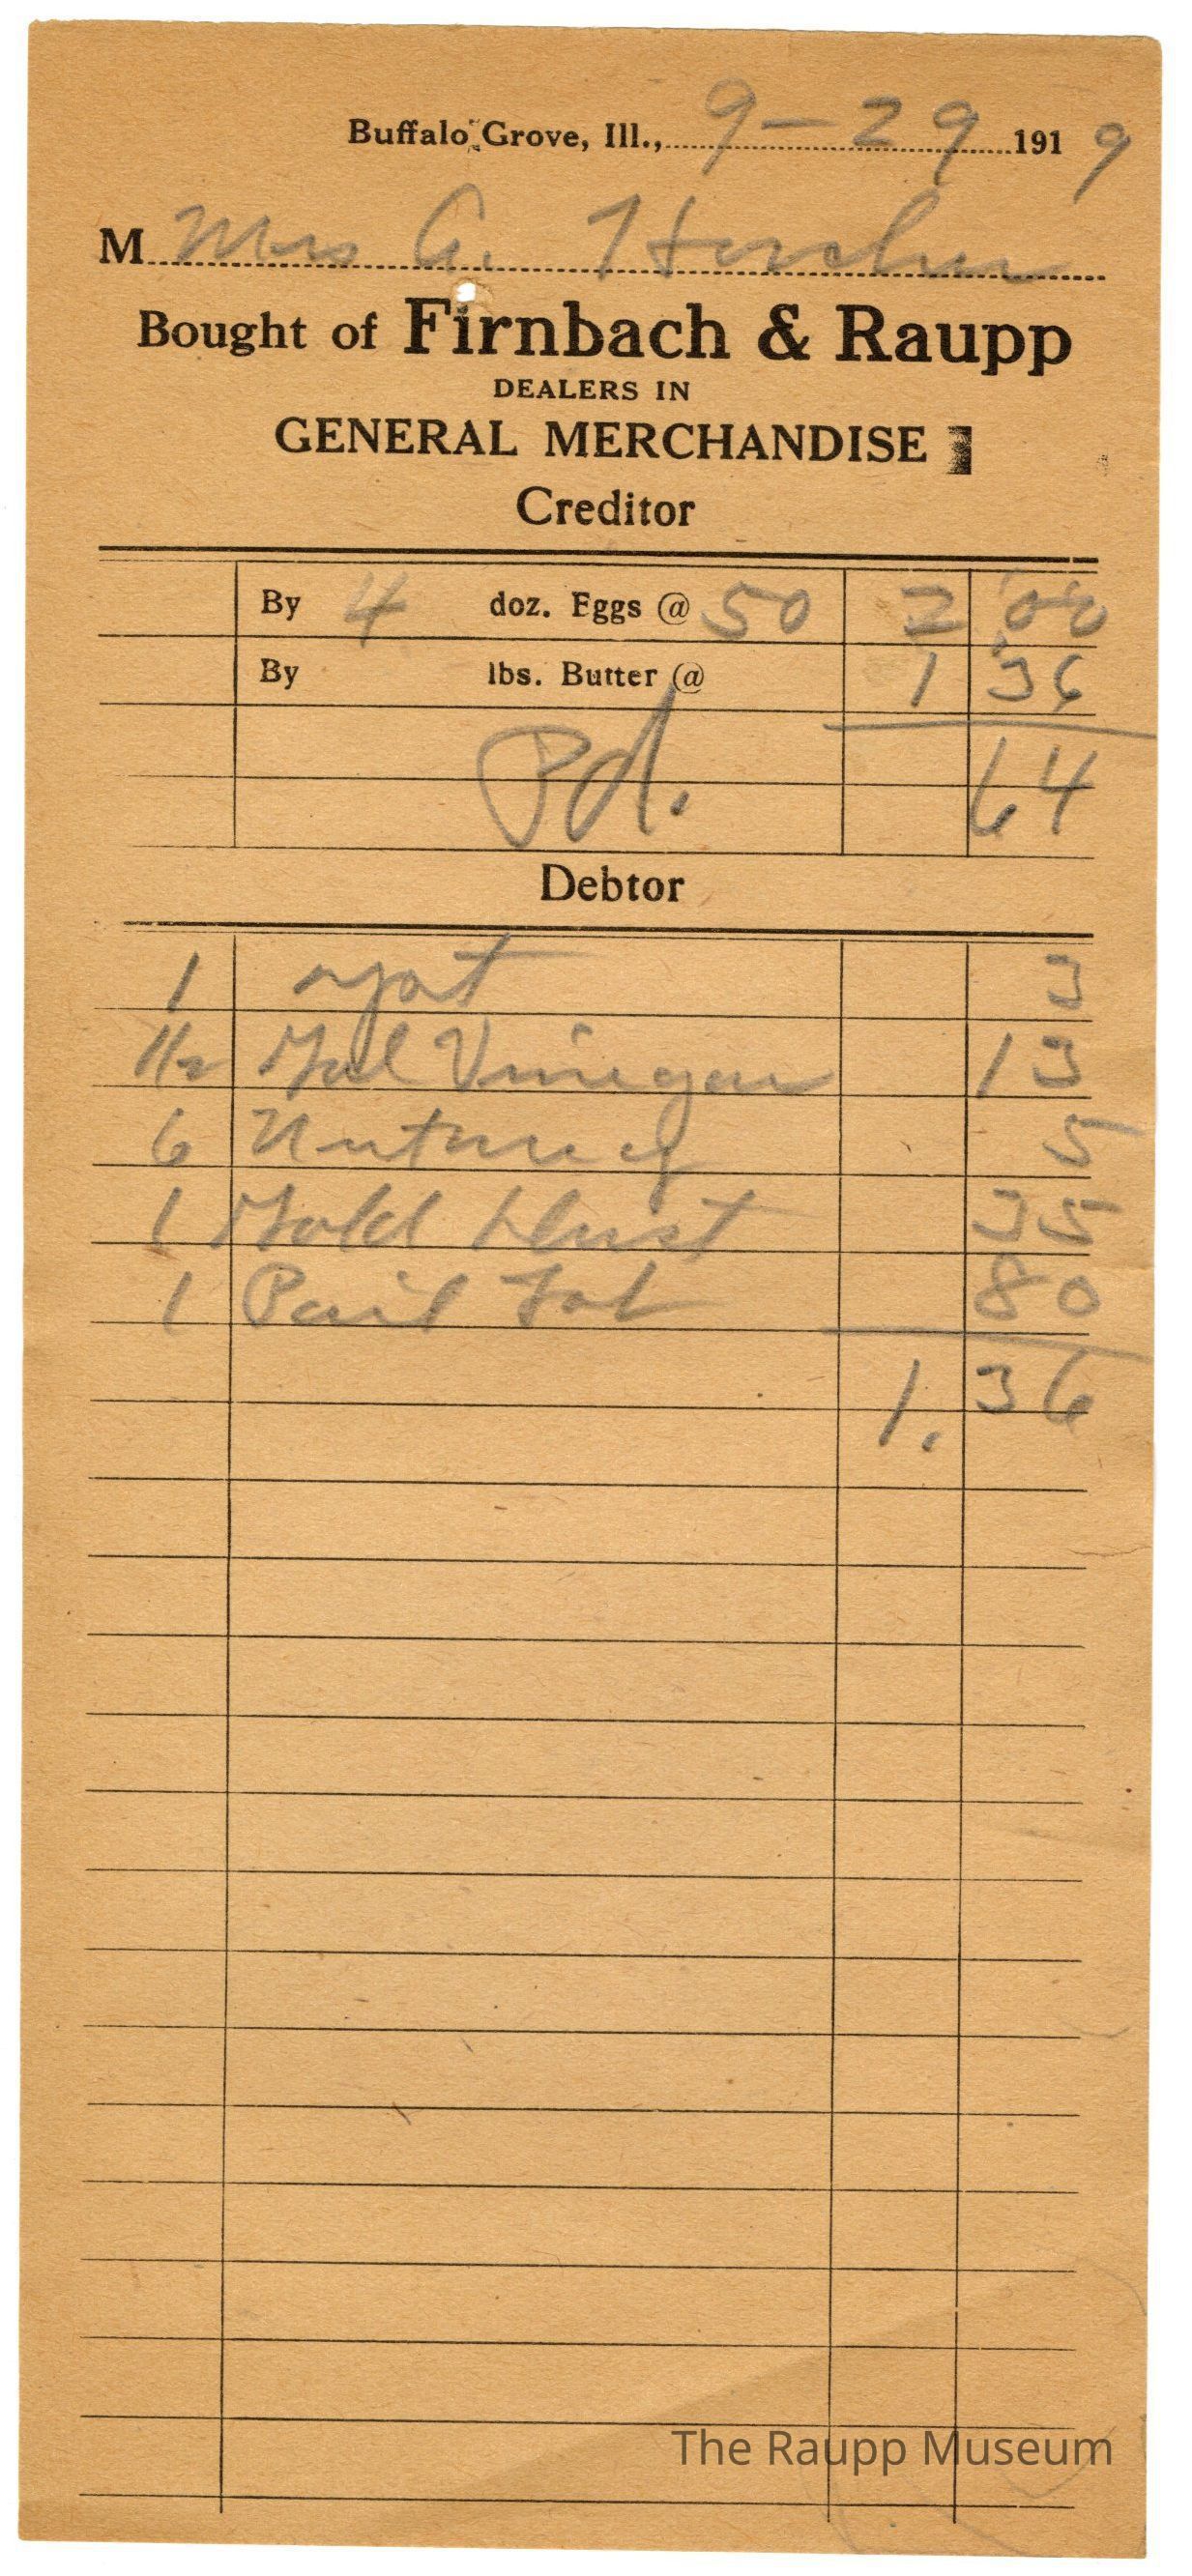 Buffalo Grove, Ill., 9-29 1919
M Mrs G.
Bought of Firnbach & Raupp
DEALERS IN
GENERAL MERCHANDISE
Creditor
By 4 doz. Eggs @ 50 2 00
By lbs. Butter @ 1 36
Pd. 64
Debtor
1 3
1/2 Gal Vinegar 13
6 Nutmeg 5
1 Gold Dust 35
1 Pail 80
1. 36
The Raupp Museum